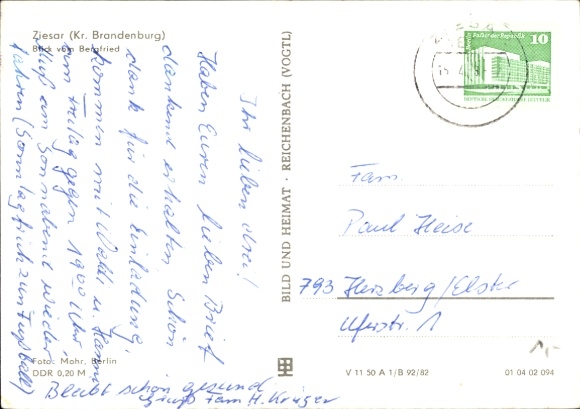 Ziesar (Kr. Brandenburg)
Blick vom Bergfried
Ihr lieben drei!
Haben Euren lieben Brief
dankend erhalten. Schön
dank für die Einladung,
kommen mit Waldi u. Hanni
am Freitag gegen 19.00 Uhr,
muß am Sonnabend wieder
fahren (Sonntag früh zum Fußball)
Bleibt schön gesund
Gruß Fam. H. Krüger
Foto: Mohr, Berlin
DDR 0,20 M
BILD UND HEIMAT · REICHENBACH (VOGTL)
10
Palast der Republik
Fam.
Paul Heise
793 Herzberg/Elster
Uferstr. 1
V 11 50 A 1/B 92/82
01 04 02 094